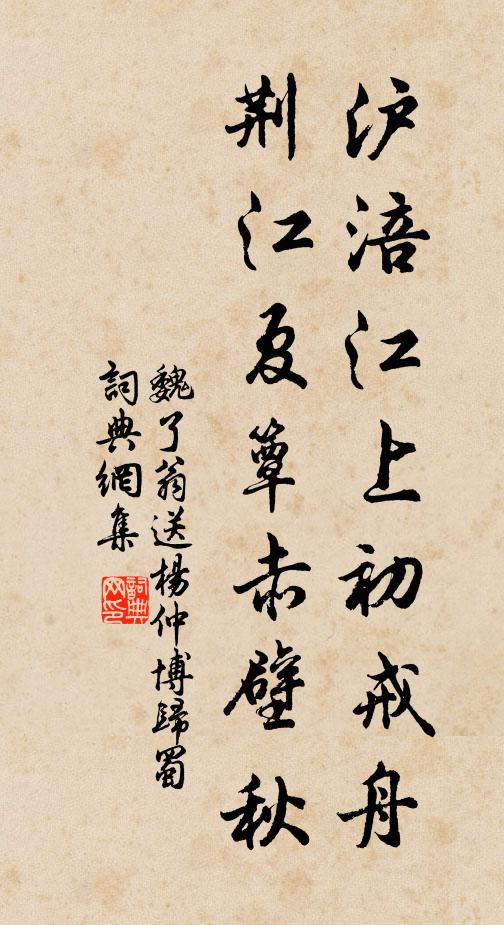 沪涪江上初戒舟
荆江夏簟赤壁秋
魏了翁送楊仲博歸蜀
詞典網集
詞典網印